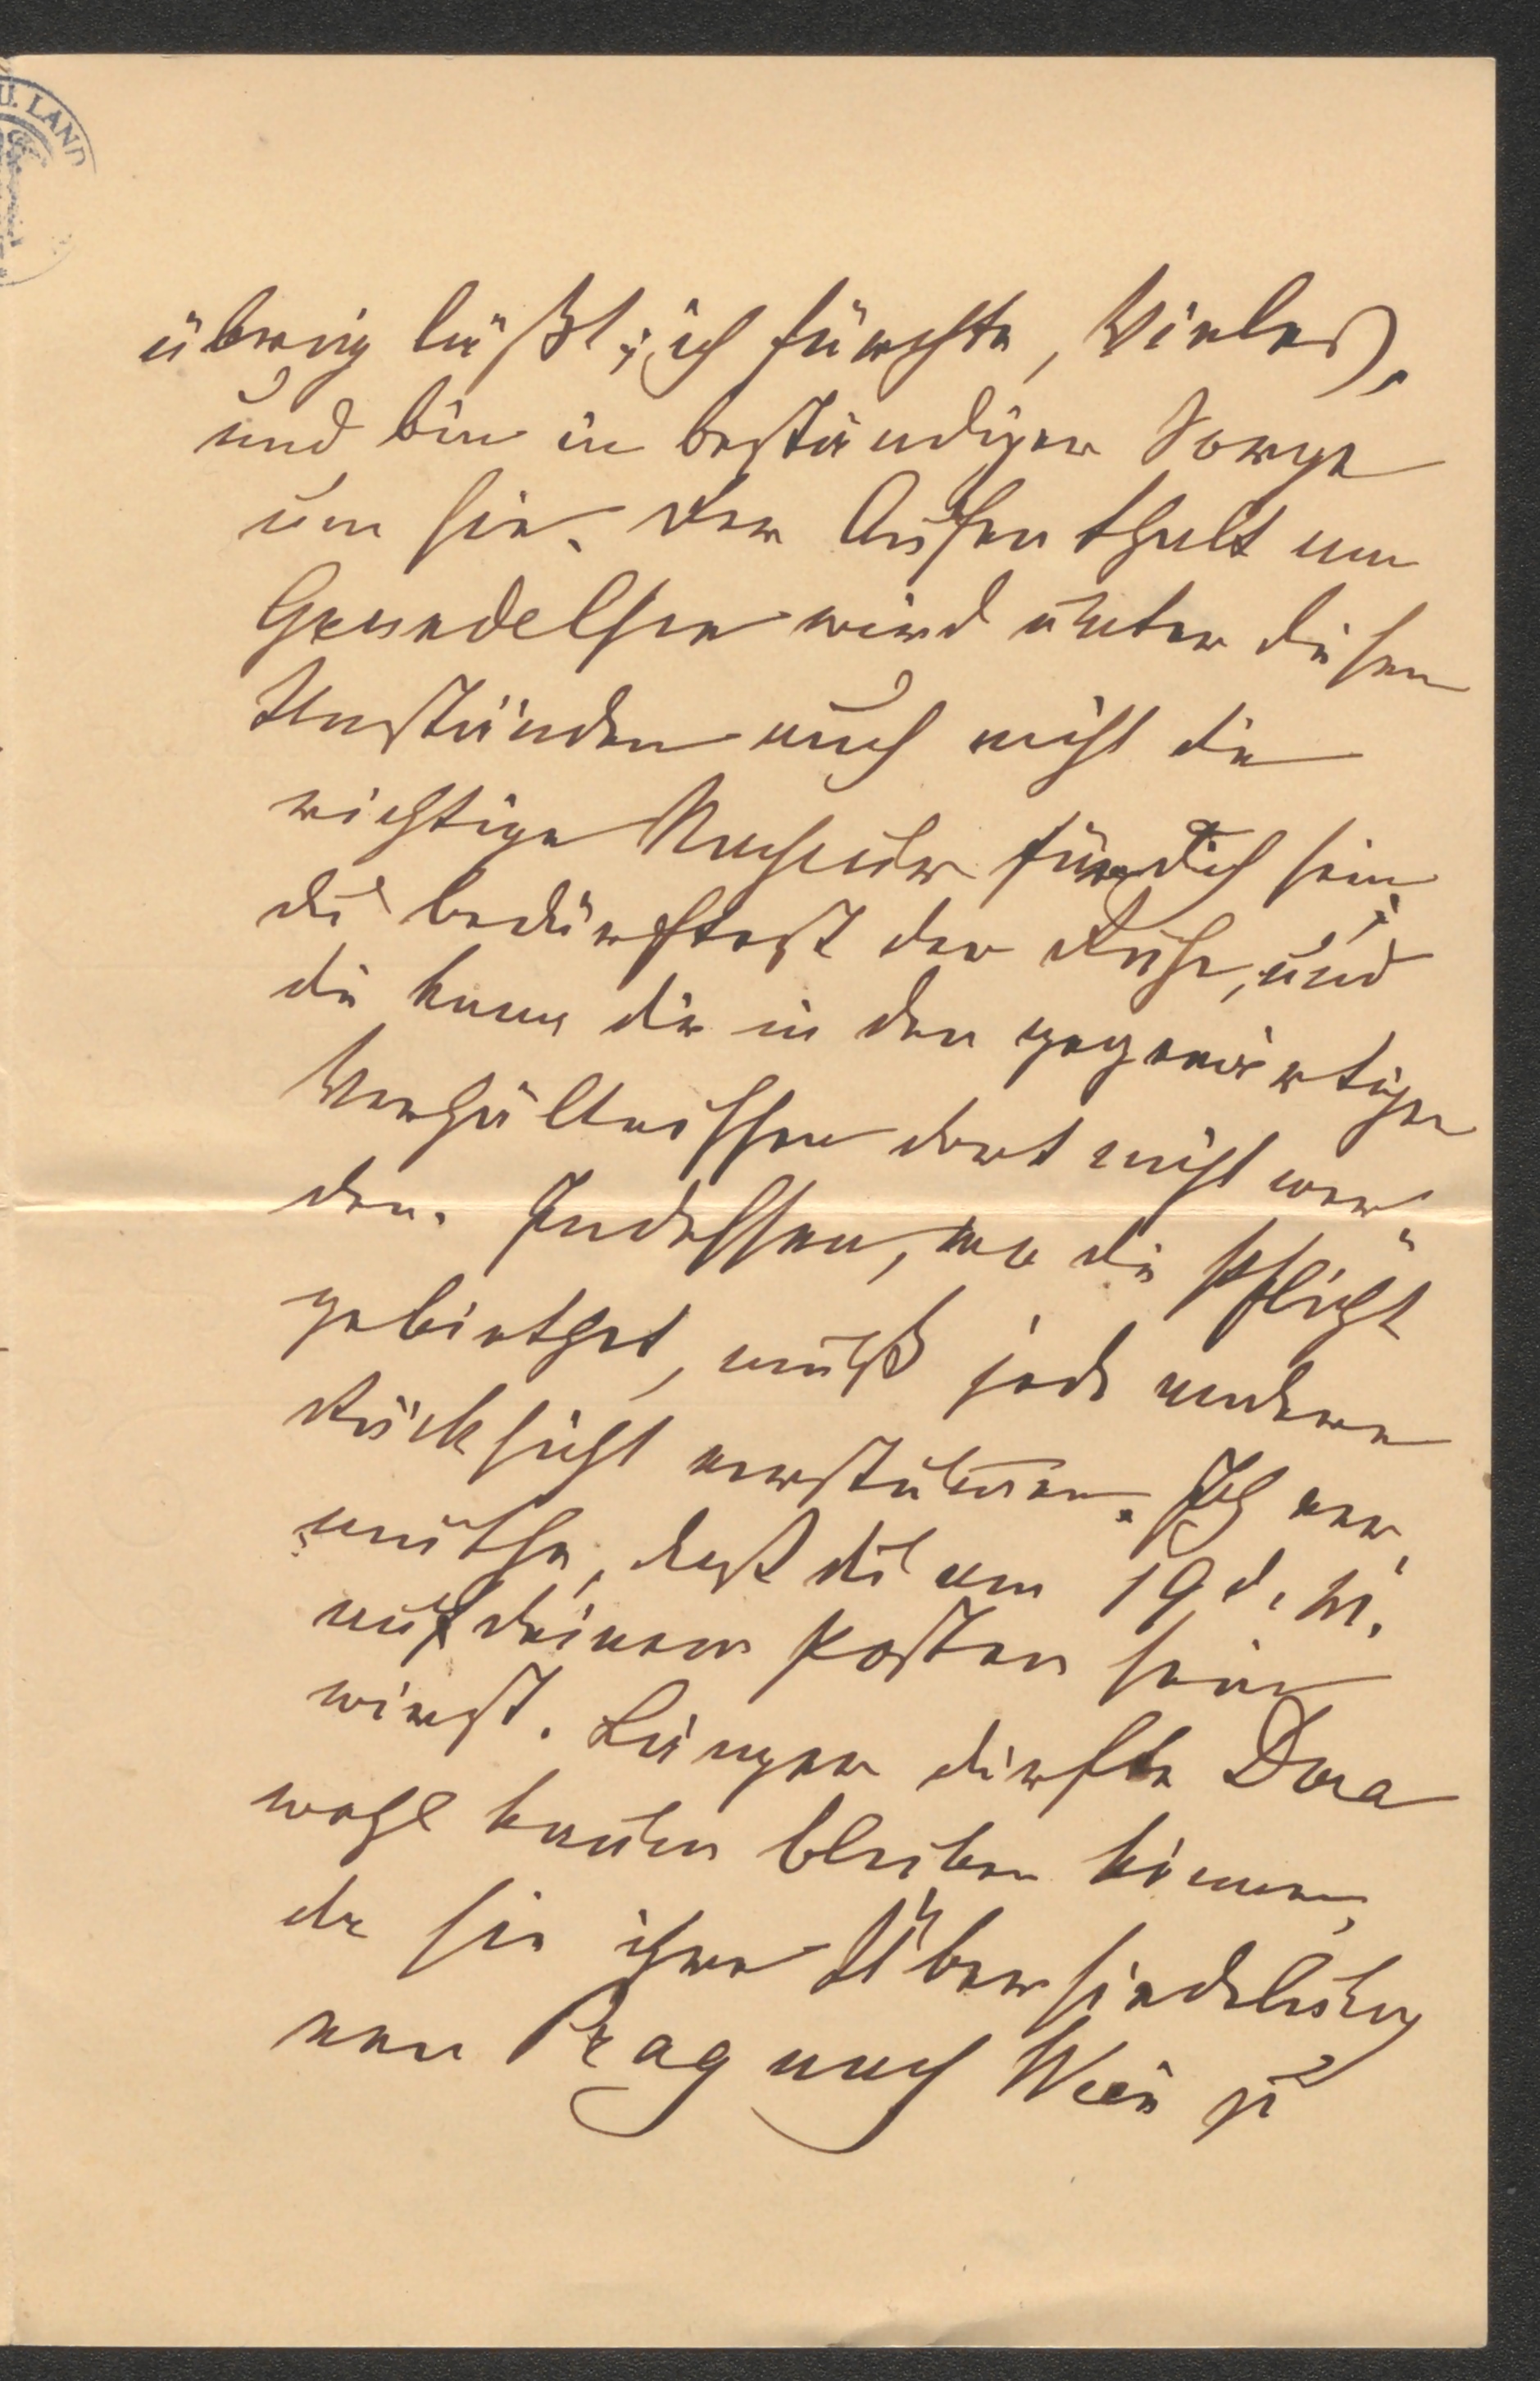 U. LAND
übrig läßt; ich fürchte, Vieles,
und bin in beständiger Sorge
um sie. Der Aufenthalt am
Grundelsee wird unter diesen
Umständen auch nicht die
richtige Nachcur für dich sein;
du bedürftest der Ruhe, und
die kann dir in den gegenwärtigen
Verhältnissen dort nicht wer-
den. Indessen, wo die Pflicht
gebiethet, muß jede andere
Rücksicht verstummen. Ich ver-
muthe, daß du am 19 d. M.
auf deinem Posten sein
wirst. Länger dürfte Dora
wohl kaum bleiben können,
da sie ihre Übersiedelung
von Prag nach Wien zu